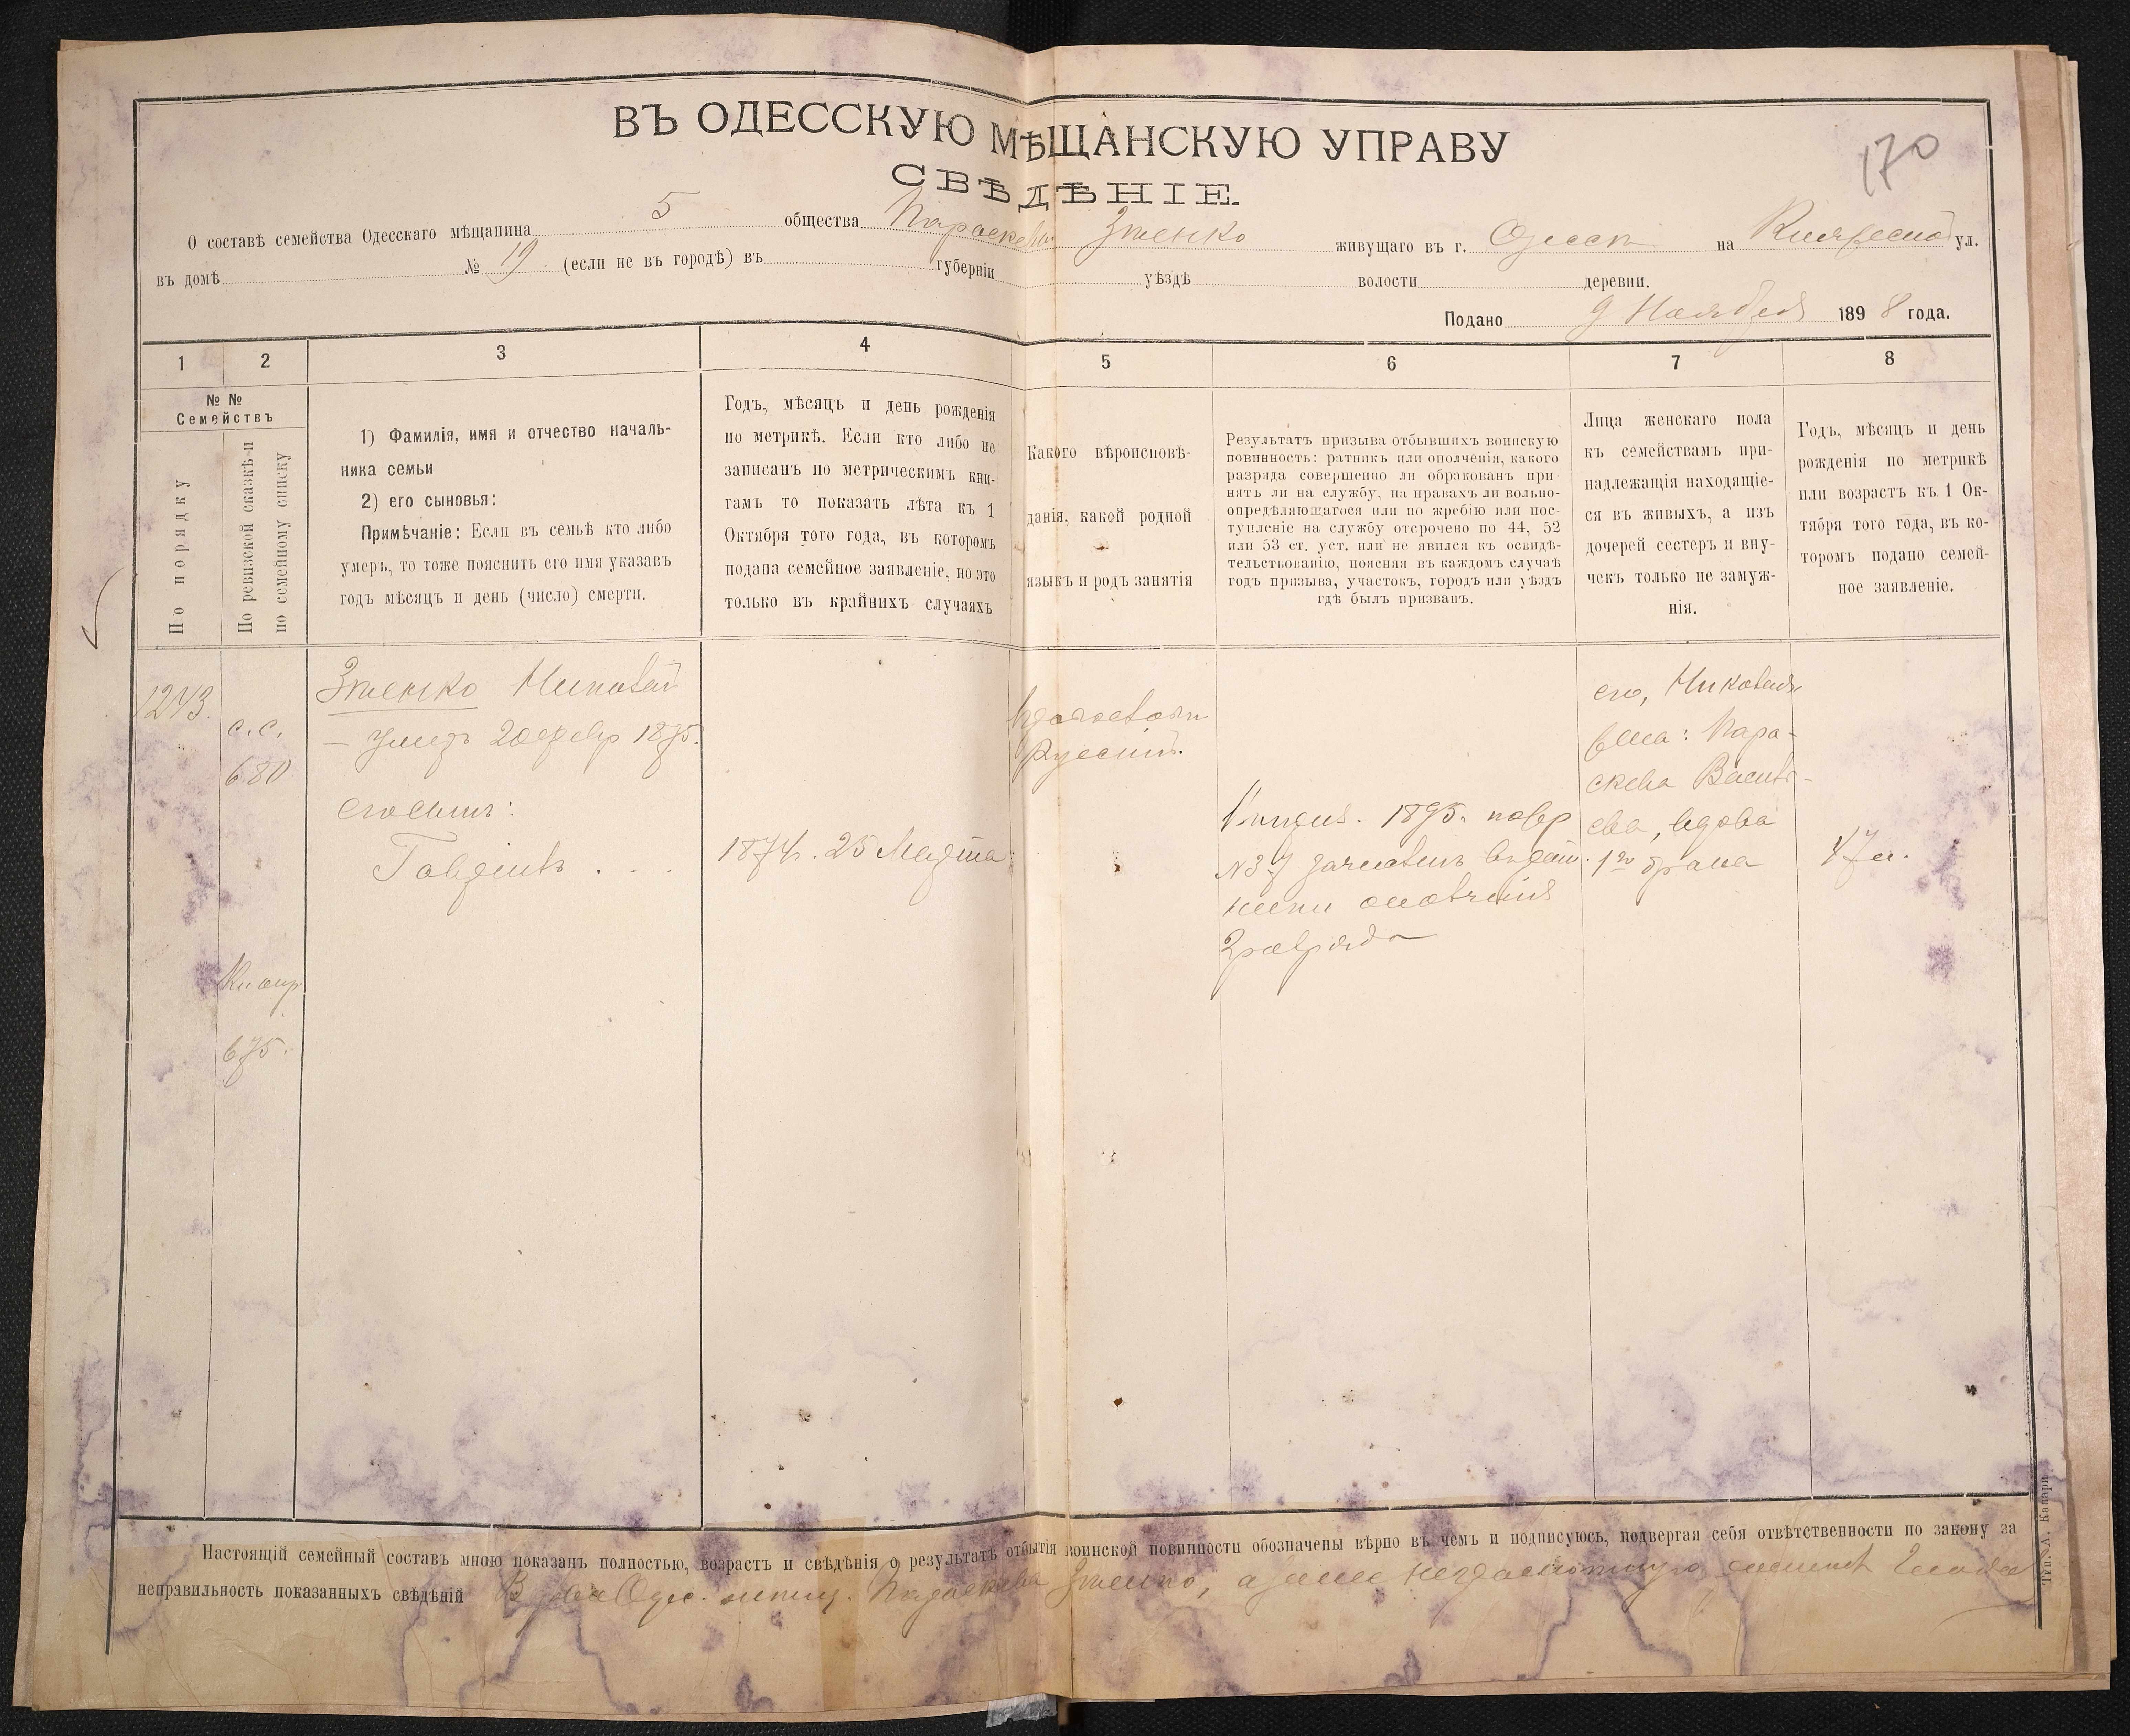 170
ВЪ ОДЕССКУЮ МѢЩАНСКУЮ УПРАВУ
СВѢДѢНІЕ.
О составѣ семейства Одесскаго мѣщанина 5 общества Параскевы Зменко живущаго въ г. Одессѣ на ул.
въ домѣ № 19 (если не въ городѣ) въ губерніи уѣздѣ волости деревни.
Подано 9 Ноября 1898 года.
1 2 3 4 5 6 7 8
№ №
Семействъ
По порядку
По ревизской сказкѣ-и
по семейному списку
1) Фамилія, имя и отчество началь-
ника семьи
2) его сыновья:
Примѣчаніе: Если въ семьѣ кто либо
умеръ, то тоже пояснить его имя указавъ
годъ мѣсяцъ и день (число) смерти.
Годъ, мѣсяцъ и день рожденія
по метрикѣ. Если кто либо не
записанъ по метрическимъ кни-
гамъ то показать лѣта къ 1
Октября того года, въ которомъ
подана семейное заявленіе, но это
только въ крайнихъ случаяхъ
Какого вѣроисповѣ-
данія, какой родной
языкъ и родъ занятія
Результатъ призыва отбывшихъ воинскую
повинность: ратникъ или ополченія, какого
разряда совершенно ли обракованъ при-
нятъ ли на службу, на правахъ ли вольно-
опредѣляющагося или по жребію или пос-
тупленіе на службу отсрочено по 44, 52
или 53 ст. уст. или не явился къ освидѣ-
тельствованію, поясняя въ каждомъ случаѣ
годъ призыва, участокъ, городъ или уѣздъ
гдѣ былъ призванъ.
Лица женскаго пола
къ семействамъ при-
надлежащія находящіе-
ся въ живыхъ, а изъ
дочерей сестеръ и вну-
чекъ только не замуж-
нія.
Годъ, мѣсяцъ и день
рожденія по метрикѣ
или возрастъ къ 1 Ок-
тября того года, въ ко-
торомъ подано семей-
ное заявленіе.
1243.
с.с.
680
675.
Зменко Николай
— умеръ 20 февр 1875.
его сынъ:
1874г. 25 Марта
Православн
Русскій.
1895. повер
№37 зачисленъ въ рат-
ники ополченія
2 разряда
его, Николая
жена: Пара-
скева Василь-
ева, вдова
1го брака
47 л.
Настоящій семейный составъ мною показанъ полностью, возрастъ и свѣдѣнія о результатѣ отбытія воинской повинности обозначены вѣрно въ чемъ и подписуюсь, подвергая себя отвѣтственности по закону за
неправильность показанныхъ свѣдѣній Вдова Одес. мѣщ. Параскева Зменко, а за нее неграмотную